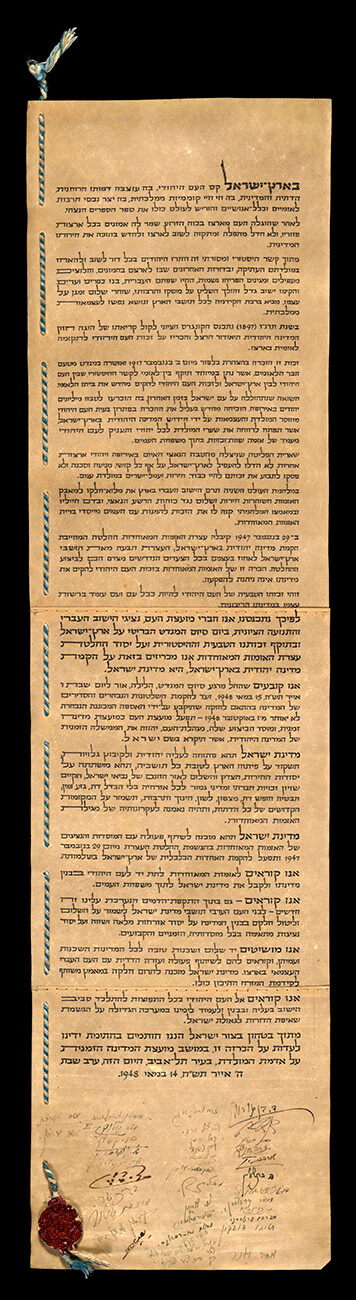 בארץ־ישראל קם העם היהודי, בה עוצבה דמותו הרוחנית,
הדתית והמדינית, בה חי חיי קוממיות ממלכתית, בה יצר נכסי תרבות
לאומיים וכלל־אנושיים והוריש לעולם כולו את ספר הספרים הנצחי.
לאחר שהוגלה העם מארצו בכוח הזרוע שמר לה אמונים בכל ארצות
פזוריו, ולא חדל מתפלה ומתקוה לשוב לארצו ולחדש בתוכה את חירותו
המדינית.
מתוך קשר היסטורי ומסורתי זה חתרו היהודים בכל דור לשוב ולהאחז
במולדתם העתיקה; ובדורות האחרונים שבו לארצם בהמונים, וחלוצים,
מעפילים ומגינים הפריחו נשמות, החיו שפתם העברית, בנו כפרים וערים,
והקימו ישוב גדל והולך השליט על משקו ותרבותו, שוחר שלום ומגן על
עצמו, מביא ברכת הקידמה לכל תושבי הארץ ונושא נפשו לעצמאות
ממלכתית.
בשנת תרנ״ז (1897) נתכנס הקונגרס הציוני לקול קריאתו של הוגה חזון
המדינה היהודית תיאודור הרצל והכריז על זכות העם היהודי לתקומה
לאומית בארצו.
זכות זו הוכרה בהצהרת בלפור מיום ב׳ בנובמבר 1917 ואושרה במנדט מטעם
חבר הלאומים, אשר נתן במיוחד תוקף בין־לאומי לקשר ההיסטורי שבין העם
היהודי לבין ארץ־ישראל ולזכות העם היהודי להקים מחדש את ביתו הלאומי.
השואה שנתחוללה על עם ישראל בזמן האחרון, בה הוכרעו לטבח מיליונים
יהודים באירופה, הוכיחה מחדש בעליל את ההכרח בפתרון בעית העם היהודי
מחוסר המולדת והעצמאות על־ידי חידוש המדינה היהודית בארץ־ישראל,
אשר תפתח לרווחה את שערי המולדת לכל יהודי ותעניק לעם היהודי
מעמד של אומה שוות־זכויות בתוך משפחת העמים.
שארית הפליטה שניצלה מהטבח הנאצי האיום באירופה ויהודי ארצות
אחרות לא חדלו להעפיל לארץ־ישראל, על אף כל קושי, מניעה וסכנה ולא
פסקו לתבוע את זכותם לחיי כבוד, חירות ועמל־ישרים במולדת עמם.
במלחמת העולם השניה תרם הישוב העברי בארץ את מלוא־חלקו למאבק
האומות השוחרות חירות ושלום נגד כוחות הרשע הנאצי, ובדם חייליו
ובמאמצו המלחמתי קנה לו את הזכות להמנות עם העמים מייסדי ברית
האומות המאוחדות.
ב־29 בנובמבר 1947 קיבלה עצרת האומות המאוחדות החלטה המחייבת
הקמת מדינה יהודית בארץ־ישראל; העצרת תבעה מאת תושבי
ארץ־ישראל לאחוז בעצמם בכל הצעדים הנדרשים מצדם הם לביצוע
ההחלטה. הכרה זו של האומות המאוחדות בזכות העם היהודי להקים את
מדינתו אינה ניתנת להפקעה.
זוהי זכותו הטבעית של העם היהודי להיות ככל עם ועם עומד ברשות
עצמו במדינתו הריבונית.
לפיכך נתכנסנו, אנו חברי מועצת העם, נציגי הישוב העברי
והתנועה הציונית, ביום סיום המנדט הבריטי על ארץ־ישראל
ובתוקף זכותנו הטבעית וההיסטורית ועל יסוד החלטת
עצרת האומות המאוחדות אנו מכריזים בזאת על הקמת
מדינה יהודית בארץ־ישראל, היא מדינת ישראל.
אנו קובעים שהחל מרגע סיום המנדט, הלילה, אור ליום שבת ו׳
אייר תש״ח, 15 במאי 1948, ועד להקמת השלטונות הנבחרים והסדירים
של המדינה בהתאם לחוקה שתיקבע על־ידי האספה המכוננת הנבחרת
לא יאוחר מ־1 באוקטובר 1948 – תפעל מועצת העם כמועצת מדינה
זמנית, ומוסד הביצוע שלה, מנהלת־העם, יהווה את הממשלה הזמנית
של המדינה היהודית, אשר תיקרא בשם ישראל.
מדינת ישראל תהא פתוחה לעליה יהודית ולקיבוץ גלויות;
תשקוד על פיתוח הארץ לטובת כל תושביה; תהא מושתתה על
יסודות החירות, הצדק והשלום לאור חזונם של נביאי ישראל; תקיים
שויון זכויות חברתי ומדיני גמור לכל אזרחיה בלי הבדל דת, גזע ומין;
תבטיח חופש דת, מצפון, לשון, חינוך ותרבות; תשמור על המקומות
הקדושים של כל הדתות; ותהיה נאמנה לעקרונותיה של מגילת
האומות המאוחדות.
מדינת ישראל תהא מוכנה לשתף פעולה עם המוסדות והנציגים
של האומות המאוחדות בהגשמת החלטת העצרת מיום 29 בנובמבר
1947 ותפעל להקמת האחדות הכלכלית של ארץ־ישראל בשלמותה.
אנו קוראים לאומות המאוחדות לתת יד לעם היהודי בבנין
מדינתו ולקבל את מדינת ישראל לתוך משפחת העמים.
אנו קוראים – גם בתוך התקפת־הדמים הנערכת עלינו זה
חדשים – לבני העם הערבי תושבי מדינת ישראל לשמור על השלום
וליטול חלקם בבנין המדינה על יסוד אזרחות מלאה ושווה ועל יסוד
נציגות מתאימה בכל מוסדותיה, הזמניים והקבועים.
אנו מושיטים יד שלום ושכנות טובה לכל המדינות השכנות
ועמיהן, וקוראים להם לשיתוף פעולה ועזרה הדדית עם העם העברי
העצמאי בארצו. מדינת ישראל מוכנה לתרום חלקה במאמץ משותף
לקידמת המזרח התיכון כולו.
אנו קוראים אל העם היהודי בכל התפוצות להתלכד סביב
הישוב בעליה ובבנין ולעמוד לימינו במערכה הגדולה על הגשמת
שאיפת הדורות לגאולת ישראל.
מתוך בטחון בצור ישראל הננו חותמים בחתימת ידינו
לעדות על הכרזה זו, במושב מועצת המדינה הזמנית,
על אדמת המולדת, בעיר תל־אביב, היום הזה, ערב שבת,
ה׳ אייר תש״ח, 14 במאי 1948.